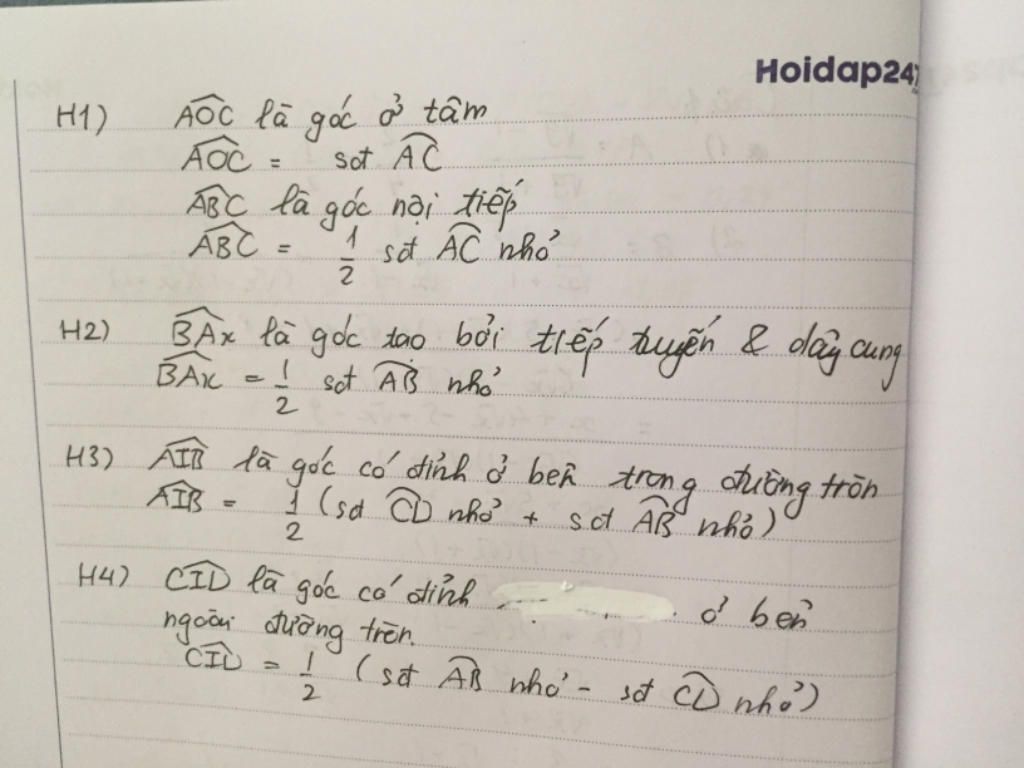 Hoidap247
H1) AOC là góc ở tâm
AOC = sđt AC
ABC là góc nội tiếp
ABC = 1/2 sđt AC nhỏ
H2) BAx là góc tạo bởi tiếp tuyến & dây cung
BAx = 1/2 sđt AB nhỏ
H3) AIB là góc có đỉnh ở bên trong đường tròn
AIB = 1/2 (sđ CD nhỏ + sđt AB nhỏ)
H4) CID là góc có đỉnh ở bên
ngoài đường tròn.
CID = 1/2 (sđt AB nhỏ - sđt CD nhỏ)